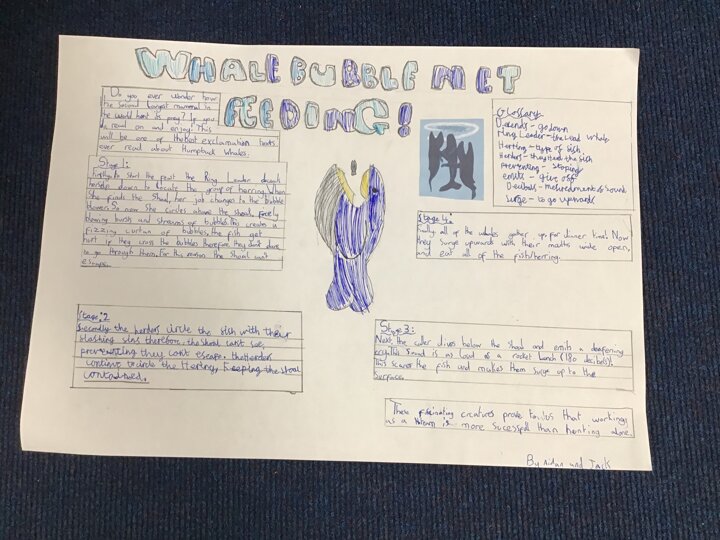 WHALE BUBBLE NET
FEEDING!
Do you ever wonder how
the second largest mammal in
the world hunt is prey? If you
do read on and enjoy. This
will be one of the best exclamation texts
ever read about Humpback Whales.
Stage 1:
Firstly, to start the feast the Ring Leader
herself down to locate the group of herring. When
She finds the Shoal, her job changes to the bubble
blower. Now She circles above the shoal,
blowing bursts and streams of bubbles. This creates a
fizzing curtain of bubbles, the fish get
hurt if they cross the bubbles therefore they don't dare
to go through them. For this reason the Shoal can't
escape.
Stage:2
Secondly the herders circle the fish with their
flashing fins therefore, the shoal cant see,
preventing they cant escape. the Herders
continue to circle the Hering, keeping the shoal
contained.
Glossary
Decends - go down
Ring Leader - the lead whale
Herring - type of fish
Herders - they herd the fish
Preventing - stoping
emits - give off
Deciball - mesurdments of sound
Surge - to go upwards
Stage 4:
Finally all of the whales gather up for dinner time. Now
they surge upwards with their mouths wide open,
and eat all of the fish/herring.
Stage 3:
Next the caller dives below the shoal and emits a deafening
cry. This Sound is as loud as a rocket lanch (180 decibels).
This scares the fish and makes them Surge up to the
surface.
These fascinating creatures prove to us that working
as a team is more sucessful than hunting alone.
By Aidan and Jack